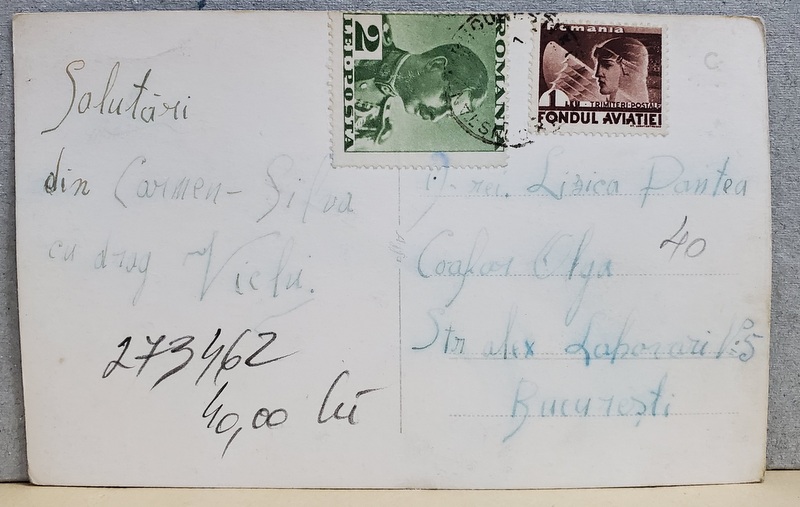 Salutări
din Carmen-Silva
cu drag Vichi.
273462
40,00 lei
2
LEI-POSTA
ROMANIA
Romania
1 LEU - TRIMITERI-POSTALE
FONDUL AVIATIEI
D-rei. Lizica Pantea
40
Coafor Olga
Str alex Lahovari No 5
București